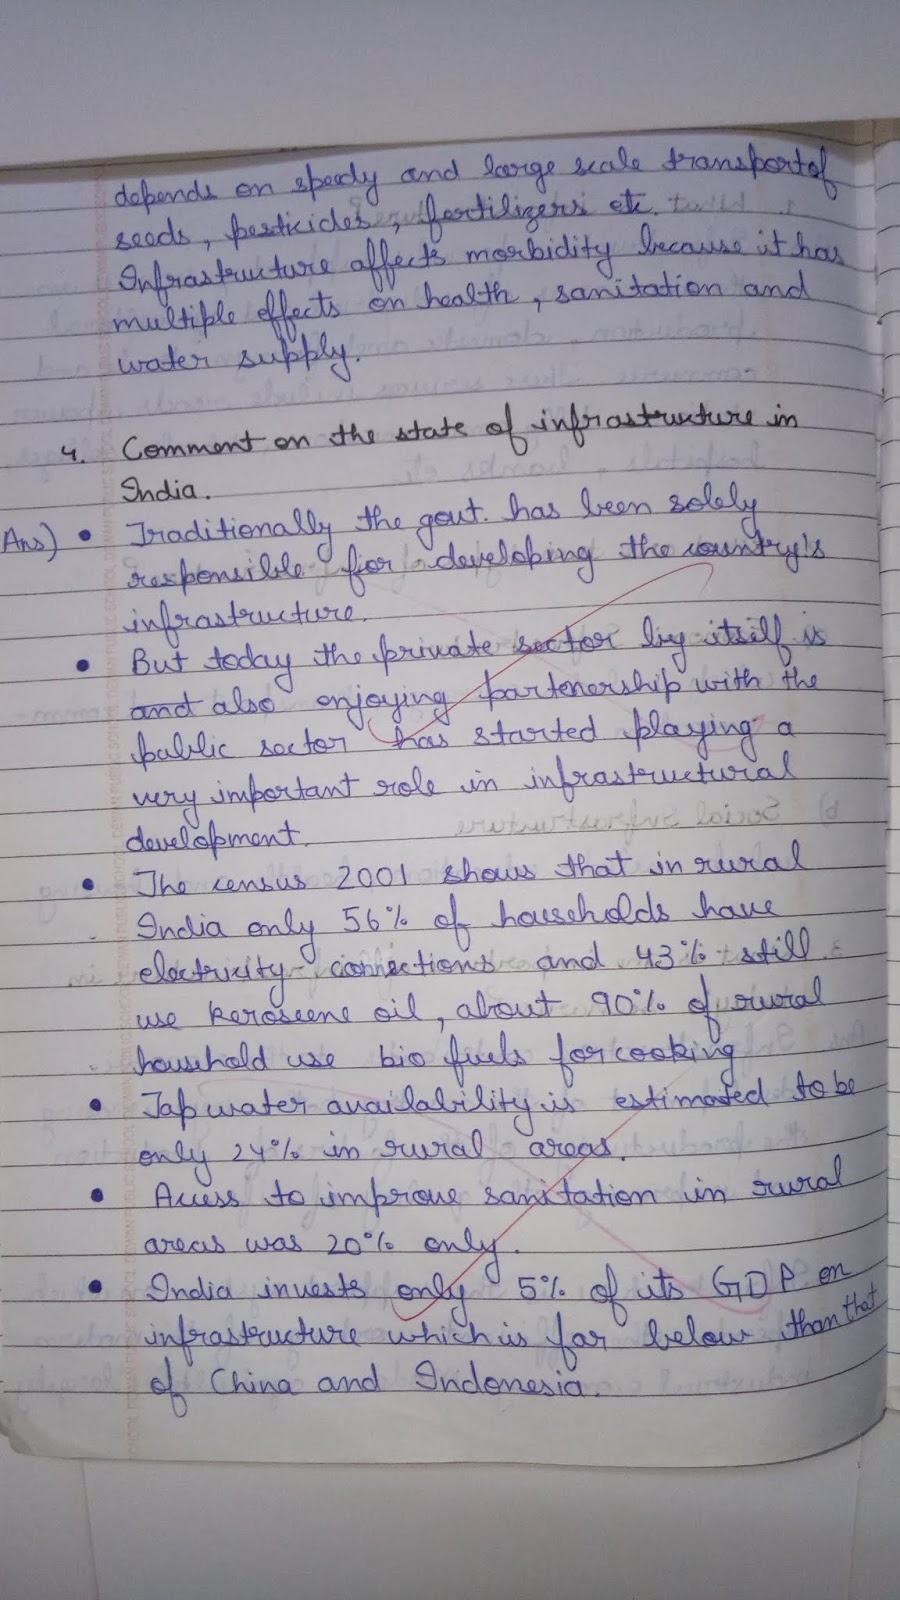 depends on speedy and large scale transport of
seeds, pesticides, fertilizers etc.
Infrastructure affects morbidity because it has
multiple effects on health, sanitation and
water supply.
4. Comment on the state of infrastructure in
India.
Ans) • Traditionally the govt. has been solely
responsible for developing the country's
infrastructure.
• But today the private sector by itself is
and also enjoying partenership with the
public sector has started playing a
very important role in infrastructural
development.
• The census 2001 shows that in rural
India only 56% of households have
electricity connections and 43% still
use keroscene oil, about 90% of rural
household use bio fuels for cooking
• Tap water availability is estimated to be
only 24% in rural areas.
• Access to improve sanitation in rural
areas was 20% only.
• India invests only 5% of its GDP on
infrastructure which is far below than that
of China and Indonesia.